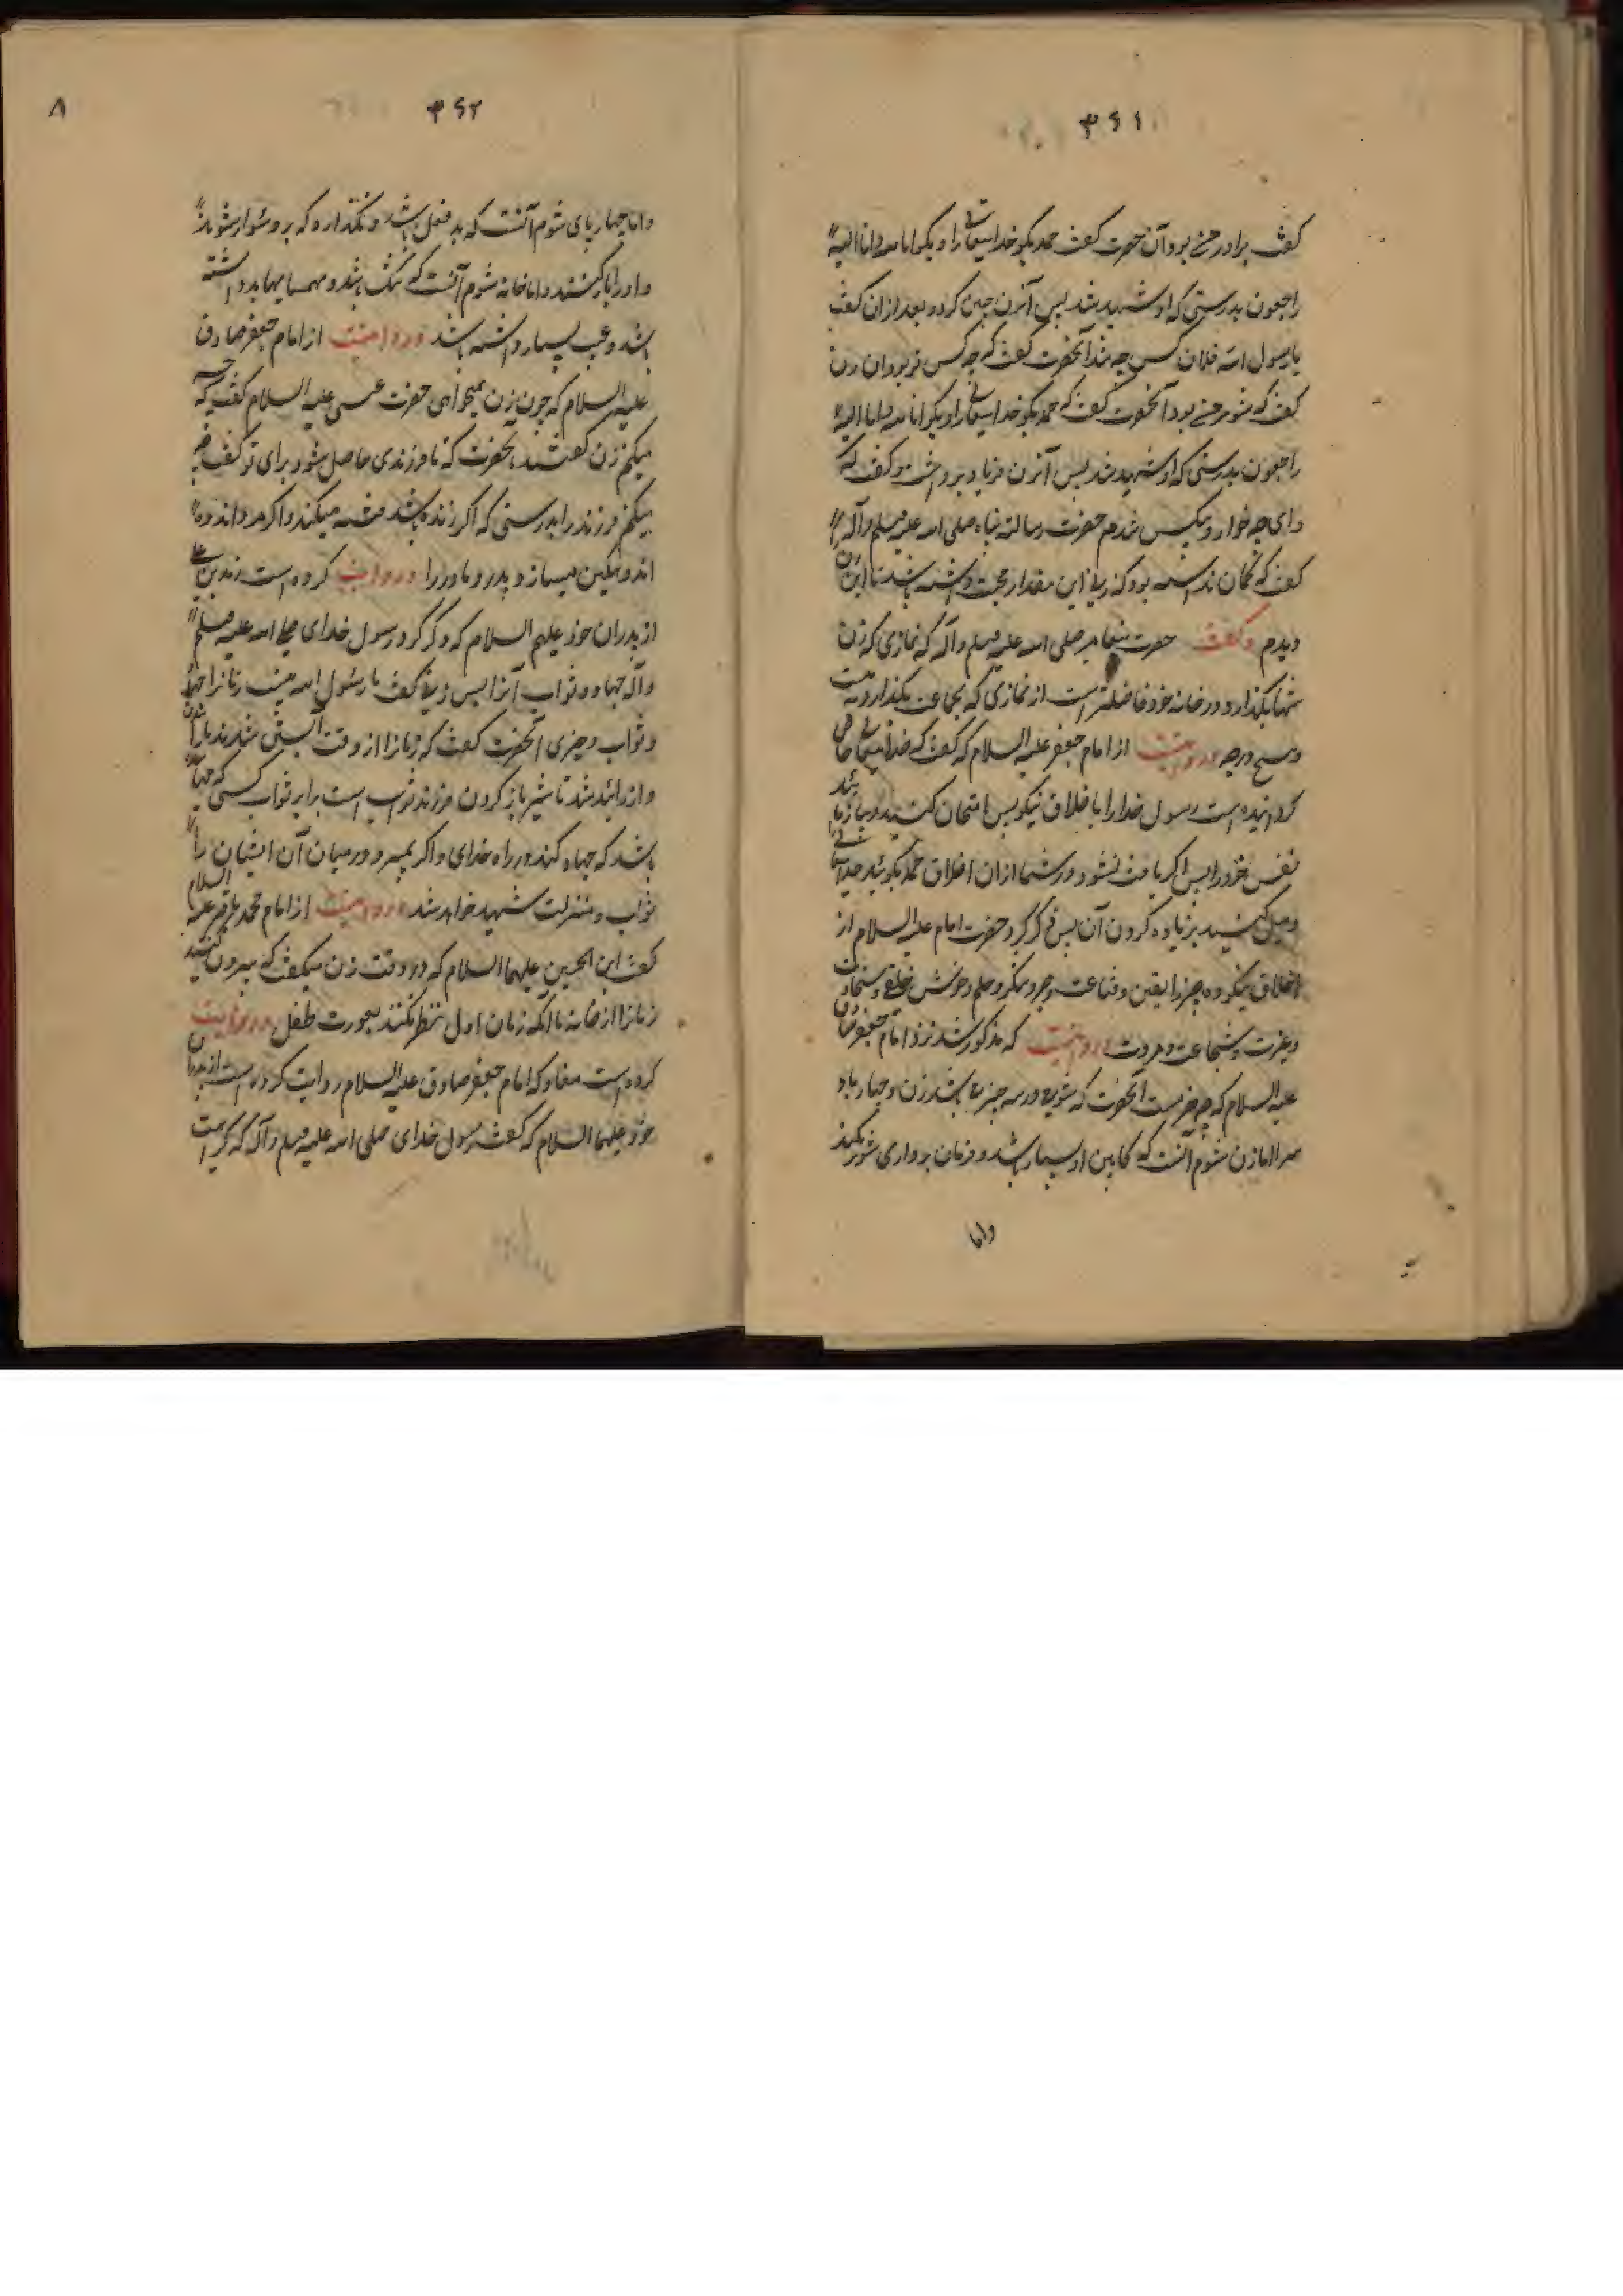 ۳۶۱
کفت برادر من بود آن حضرت کفت حمد بکو خدایتعالی را و بکو انا لله و انا الیه
راجعون بدرستی که او شهید شد پس آنزن چنین کرد و بعد از ان کفت
یا رسول الله فلان کس چه شد آنحضرت کفت که چه کس تو بود ان زن
کفت که شوهر من بود آنحضرت کفت که حمد بکو خدایتعالی را و بکو انا لله و انا الیه
راجعون بدرستی که او شهید شد پس آنزن فریاد برداشت و کفت که
وای چه خوار و بیکس شدم حضرت رسالة پناه صلی الله علیه وسلم وآله
کفت که کمان نداشته بود که زنی این مقدار محبت داشته باشد تا این زن
دیدم و کفت حضرت پیغامبر صلی الله علیه وسلم وآله که نمازی که زن
تنها بکذارد در خانه خود فاضلتر است از نمازی که بجماعت بکذارد به بیست
و پنج درجه و روایتست از امام جعفر علیه السلام که کفت که خدایتعالی خاص
کردانیده است رسول خدا را باخلاق نیکو پس امتحان کنید و بیازمائید
نفس خود را پس اکر یافت نشود در شما از ان اخلاق حمد بکوئید خدایتعالی را
و میل کنید بزیاده کردن آن پس ذکر کرد حضرت امام علیه السلام از
اخلاق نیکو ده چیز را یقین و قناعت و صبر و شکر و حلم و خوش خلقی و سخاوت
و غیرت و شجاعت و مروت و روایتست که مذکور شد نزد امام جعفر صادق
علیه السلام که چیزیست آنحضرت که شوم در سه چیز میباشد زن و چهارپا و
سرا اما زن شوم آنست که کابین او بسیار باشد و فرمان برداری شوهر نکند
واما
۳۶۲
۸
واما چهارپای شوم آنست که بد فعل باشد و نکذارد که برو سوار شوند
و او را بار کنند و اما خانه شوم آنست که تنک باشد و همسایهای بد داشته
باشد و عیب بسیار داشته باشد و روایتست از امام جعفر صادق
علیه السلام که چون زن نمیخواهی حضرت عیسی علیه السلام کفت که چه
میکنم زن کفتند بحضرت که تا فرزندی حاصل شود برای تو کفت چه
میکنم فرزند را بدرستی که اکر زنده باشد فتنه میکند و اکر مرد اندوه
اندوهکین میسازد پدر و مادر را و روایت کرده است زید بن علی
از پدران خود علیهم السلام که ذکر کرد رسول خدای صلی الله علیه وسلم
وآله جهاد و ثواب آنرا پس زنی کفت یا رسول الله نیست زنانرا جهاد
و ثواب و چیزی آنحضرت کفت که زنانرا از وقت آبستن شدن تا زائیدن
و از زائید شد تا شیر باز کردن فرزند ثواب است برابر ثواب کسی که جهاد
باشد که جهاد کند در راه خدای و اکر بمیرد در میان آن ایشان را
ثواب و منزلت شهید خواهد شد و روایتست از امام محمد باقر علیه السلام
کفت ابن الحسین علیهما السلام که در وقت زن میکفت که بیرون کنید
زنانرا از خانه تا آنکه زنان اول نظر نکنند بعورت طفل و روایت
کرده است که امام جعفر صادق علیه السلام روایت کرده است از پدران
خود علیهما السلام که کفت رسول خدای صلی الله علیه وسلم وآله که کراهت